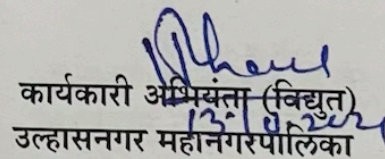 कार्यकारी अभियंता (विद्युत)
उल्हासनगर महानगरपालिका